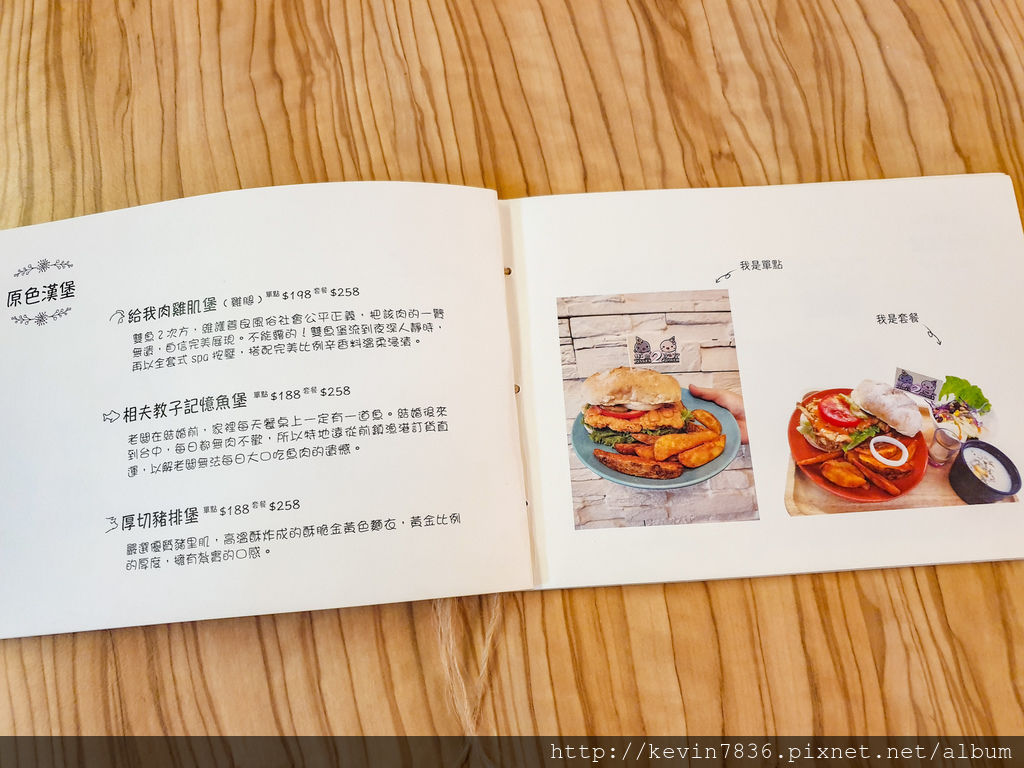 原色漢堡
給我肉雞肌堡（雞腿）單點 $198 套餐 $258
雙魚2次方，維護善良風俗社會公平正義，把該肉的一覽
無遺，自信完美展現。不能露的！雙魚堡流到夜深人靜時，
再以全套式 spa 按壓，搭配完美比例辛香料溫柔浸漬。
相夫教子記憶魚堡 單點 $188 套餐 $258
老闆在結婚前，家裡每天餐桌上一定有一道魚。結婚後來
到台中，每日都無肉不歡，所以特地遠從前鎮漁港訂貨直
運，以解老闆無法每日大口吃魚肉的遺憾。
厚切豬排堡 單點 $188 套餐 $258
嚴選優質豬里肌，高溫酥炸成的酥脆金黃色麵衣，黃金比例
的厚度，擁有紮實的口感。
我是單點
我是套餐
http://kevin7836.pixnet.net/album